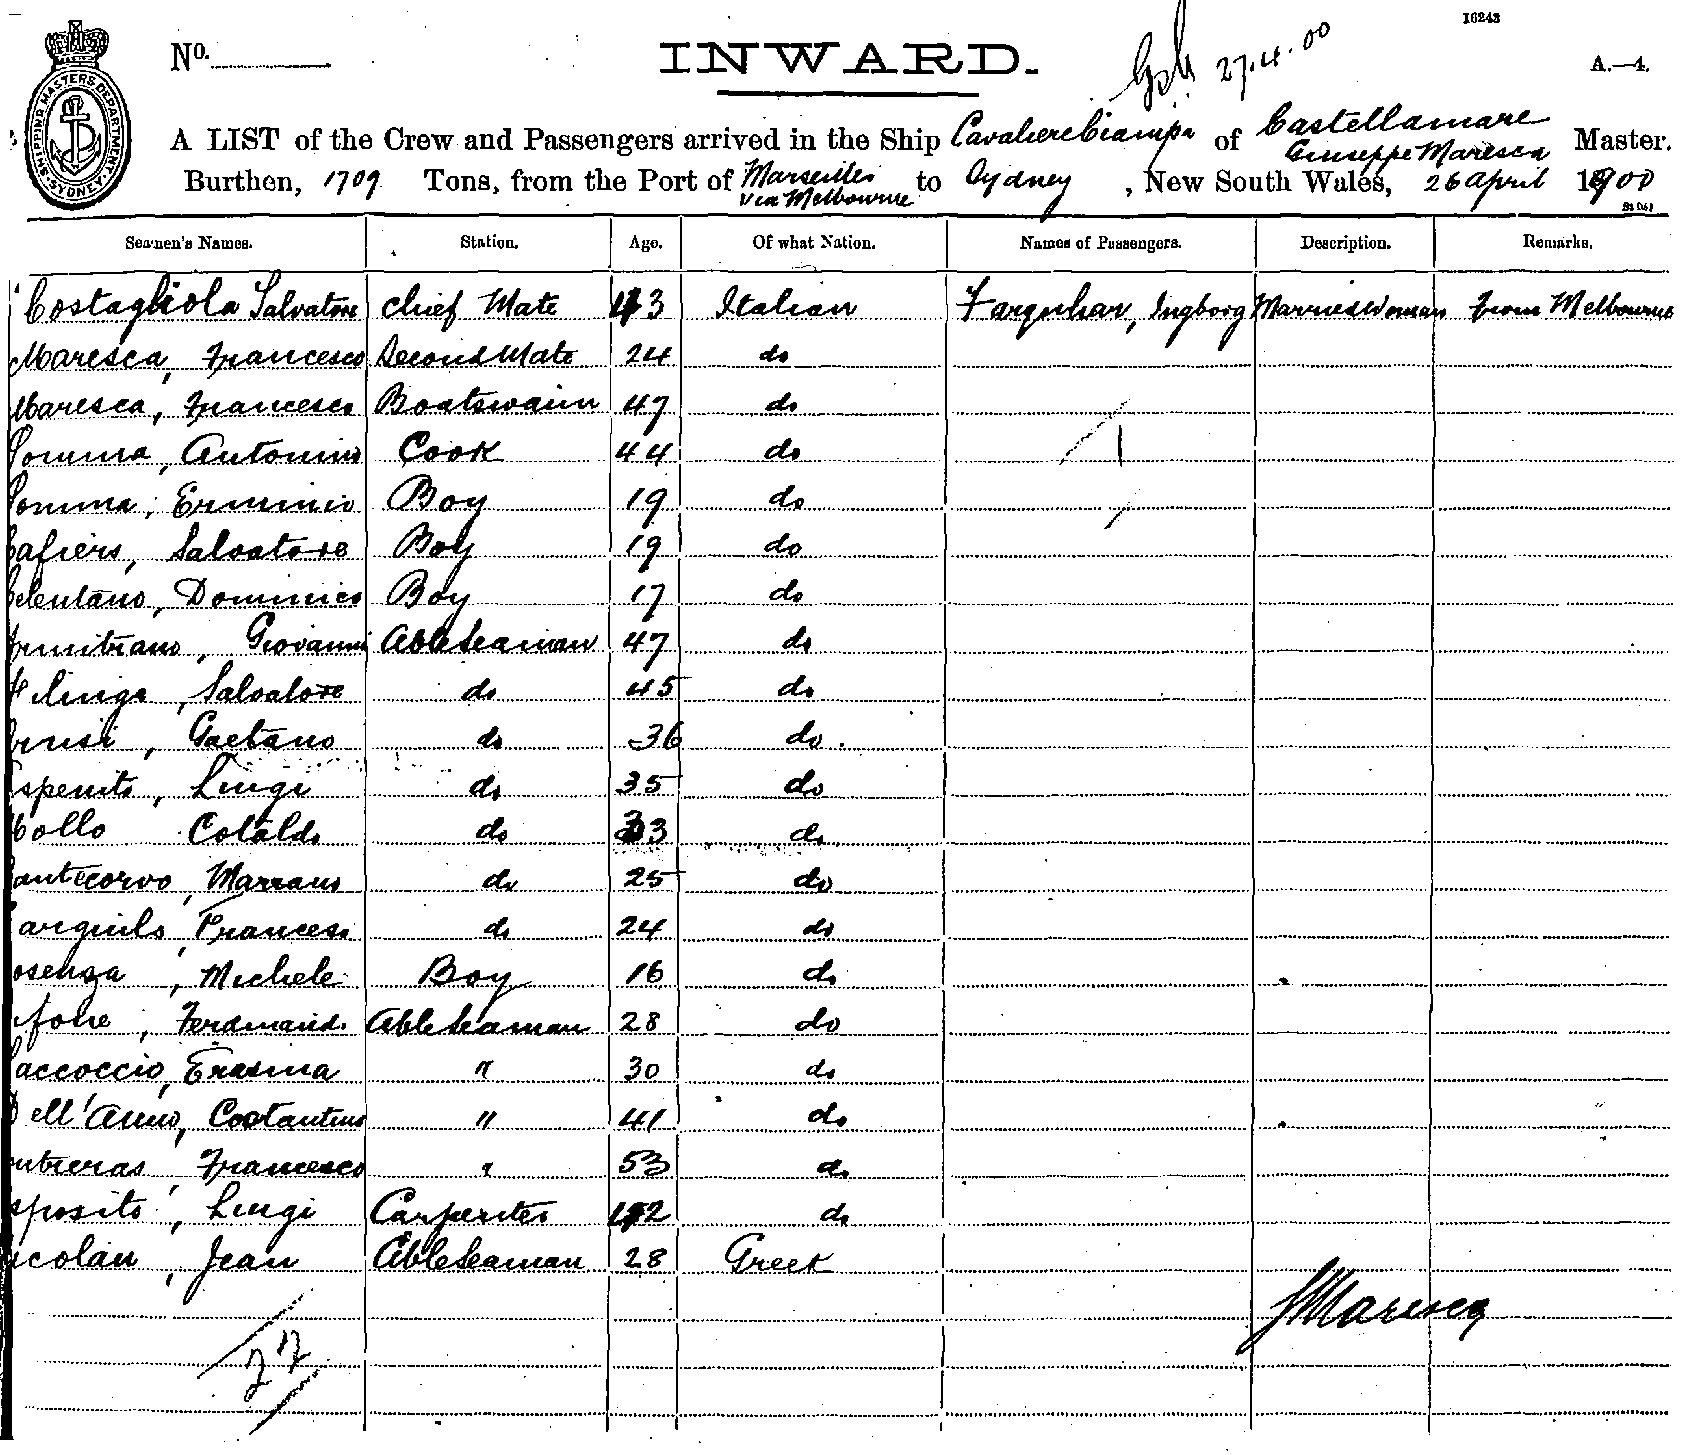 16243
No.
INWARD.
27.4.00
A.—4.
SHIPPING MASTERS DEPARTMENT. SYDNEY.
A LIST of the Crew and Passengers arrived in the Ship Cavaliere Ciampa of Castellamare Giuseppe Maresca Master.
Burthen, 1709 Tons, from the Port of Marseilles via Melbourne to Sydney, New South Wales, 26 April 1900
Seamen's Names. Station. Age. Of what Nation. Names of Passengers. Description. Remarks.
Costagliola Salvatore Chief Mate 43 Italian Farquhar, Ingborg Married Woman from Melbourne
Maresca, Francesco Second Mate 24 do
Maresca, Francesco Boatswain 47 do
Somma, Antonino Cook 44 do
1
Somma, Erminio Boy 19 do
Cafiero, Salvatore Boy 19 do
Celentano, Dominico Boy 17 do
Giovanni Able Seaman 47 do
Salvatore do 45 do
Gaetano do 36 do
Luigi do 35 do
Cotaldo do 33 do
antecorvo, Marzano do 25 do
arquilo, Francesco do 24 do
osenza, Michele Boy 16 do
Ferdinando Able Seaman 28 do
accoccio, Erasma " 30 do
Dell'Anno, Costantino " 41 do
ntreras, Francesco " 53 do
sposito, Luigi Carpenter 42 do
icolan, Jean Able Seaman 28 Greek
G Maresca
22